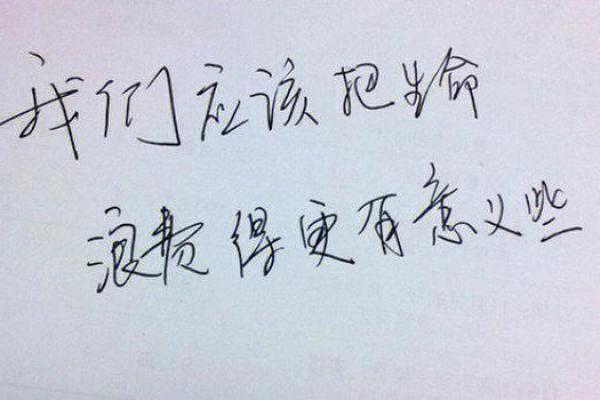 我们应该把生命
浪费得更有意义些